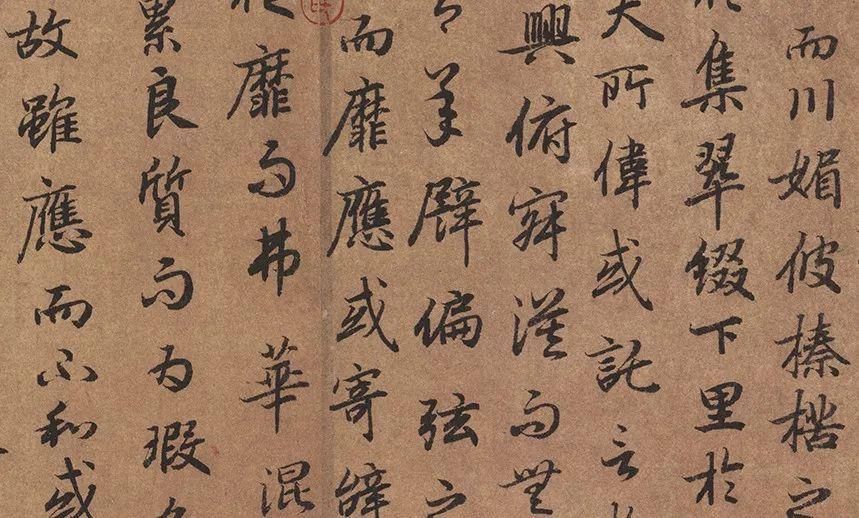 而川媚彼榛楛之
集翠綴下里於
夫所偉或託言
興俯寂漠而無
承臂偏弦之
而靡應或寄辭
靡而弗華混
累良質而為瑕
故雖應而不和或